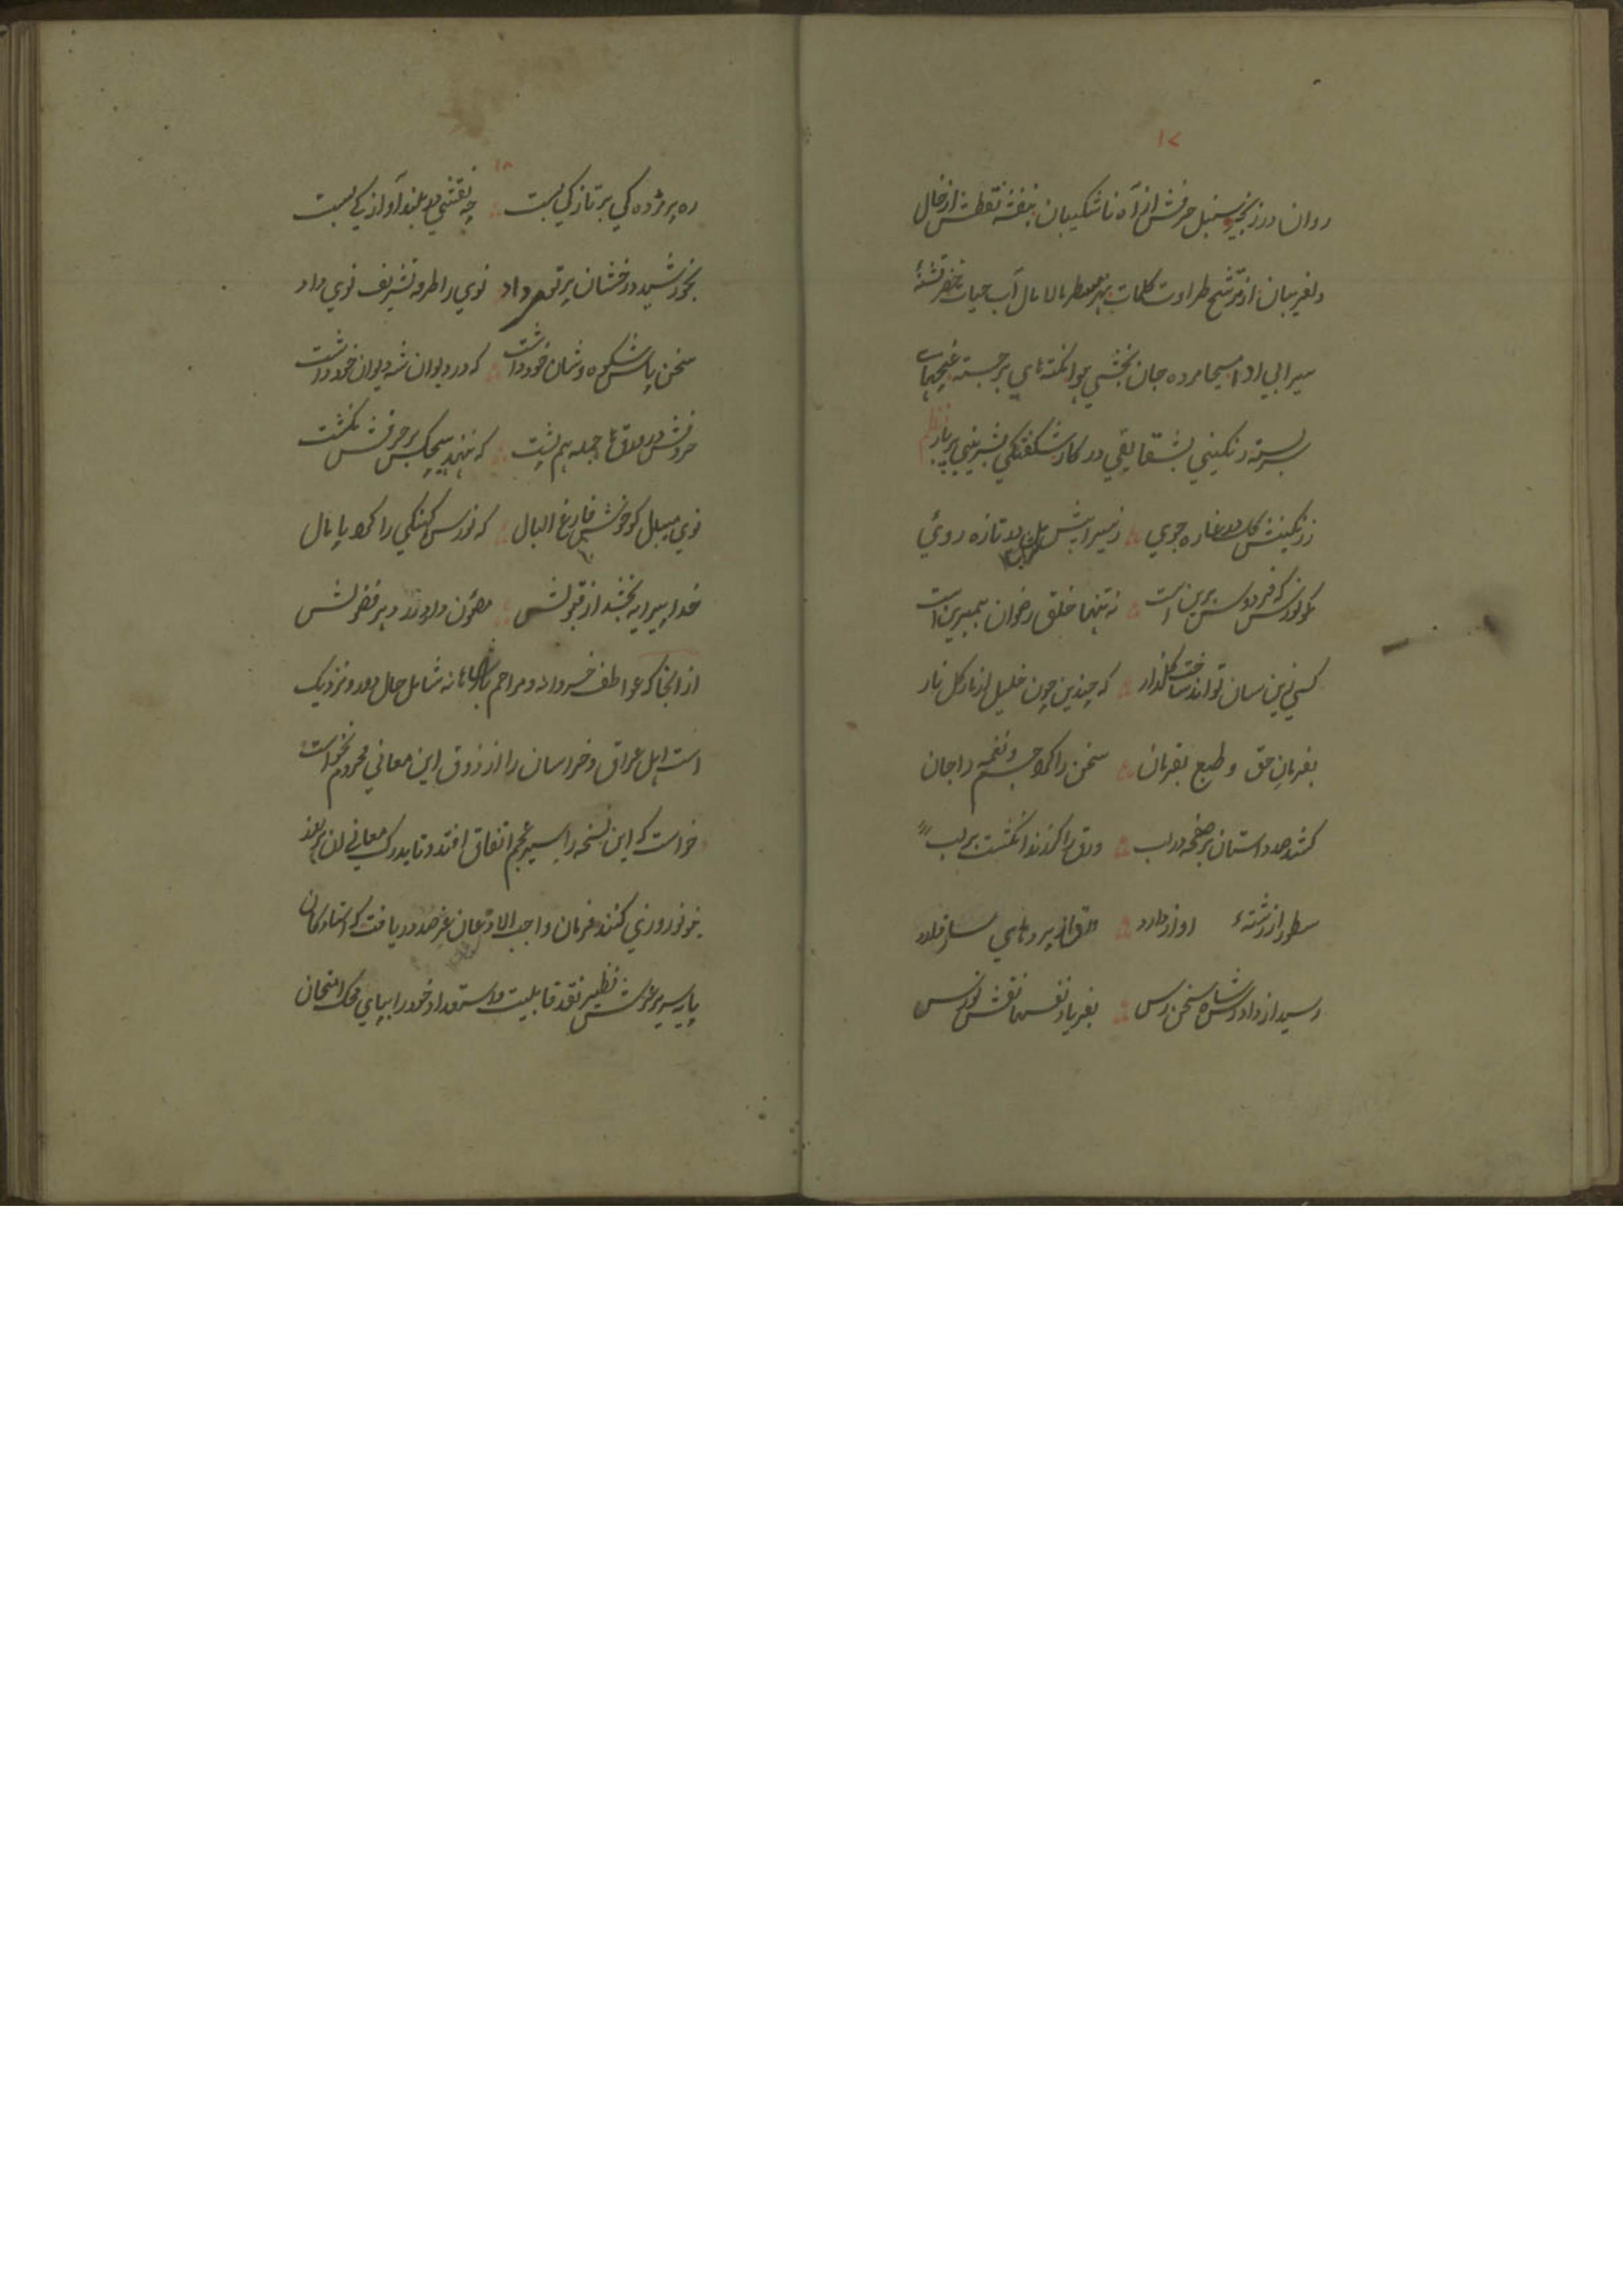 ۱۷
روان در زنجیر سنبل حرفش از آه ناشکیبان بنفشه نقطش از خال
دلفریبان از ترشح طراوت کلمات نهر سطر مالامال آب حیات خضر تشنهٔ
سیرابی او مسیحا مرده جان بخشی هوا نکته های برجسته غنچهای
بسته رنگینی بشقایقی در کار شگفتگی بشیرینی پر بار نظم
ز رنگینیش گل غازه جوی ز سیرابیش تازه روئی
گو نورس که فردوس برین است نه تنها خلق رضوان همبرین است
کسی زین سان تواند ساخت گلزار که چیند چون خلیل از نار گل نار
بفرمان حق و طبع بفرمان سخن را کرد جسم و نغمه را جان
کشد صد داستان بر صفحه در لب ورق را گر زند انگشت بر لب
سطور از رشتهٔ آواز دارد ورق از پردهای ساز دارد
رسید از داورش شاه سخن رس بفریاد نفسها نقش نورس
۱۸
ره پژمردگی بر تازگی بست چه نقشی بلند آوازگی بست
بخورشید درخشان پرتوی داد نوی را طرفه تشریف نوی داد
سخن پاس شکوه و شان خود داشت که در دیوان شه دیوان خود داشت
حرفش در ورقها جمله هم پشت که ننهد هیچکس بر حرفش انگشت
نوی میبال گو خوش فارغ البال که نورس کهنگی را کرد پامال
خدا پیرایه بخشد از قبولش مصئون دارد زرد هر فضولش
از انجا که عواطف خسروانه و مراحم پادشاهانه شامل حال دور و نزدیک
است اهل عراق و خراسان را از ذوق این معانی محروم نخواست
خواست که این نسخه را سیر عجم اتفاق افتد و تا بدرک معانی آن هر روز
نو نوروزی کنند فرمان واجب الاذعان عز صدور یافت که استادگان
پایه سریر عرش نظیر نقد قابلیت و استعداد خود را بپای محک امتحان